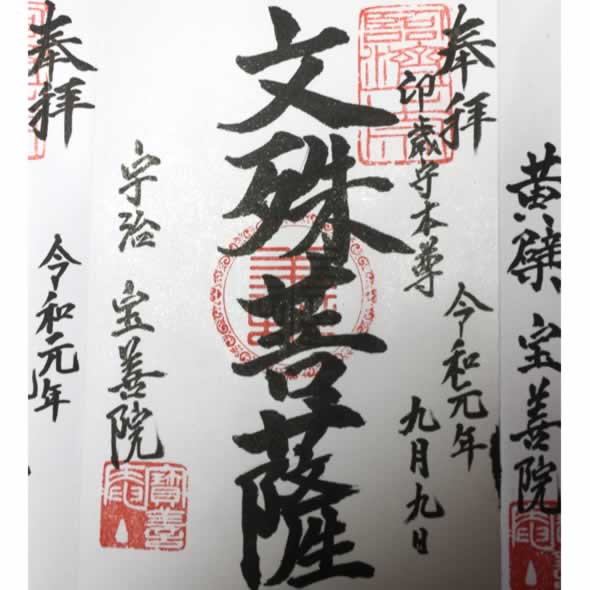 黄檗 宝善院
奉拝
卯歳守本尊
令和元年
九月九日
文殊菩薩
宇治 宝善院
寶善院
奉拝
令和元年